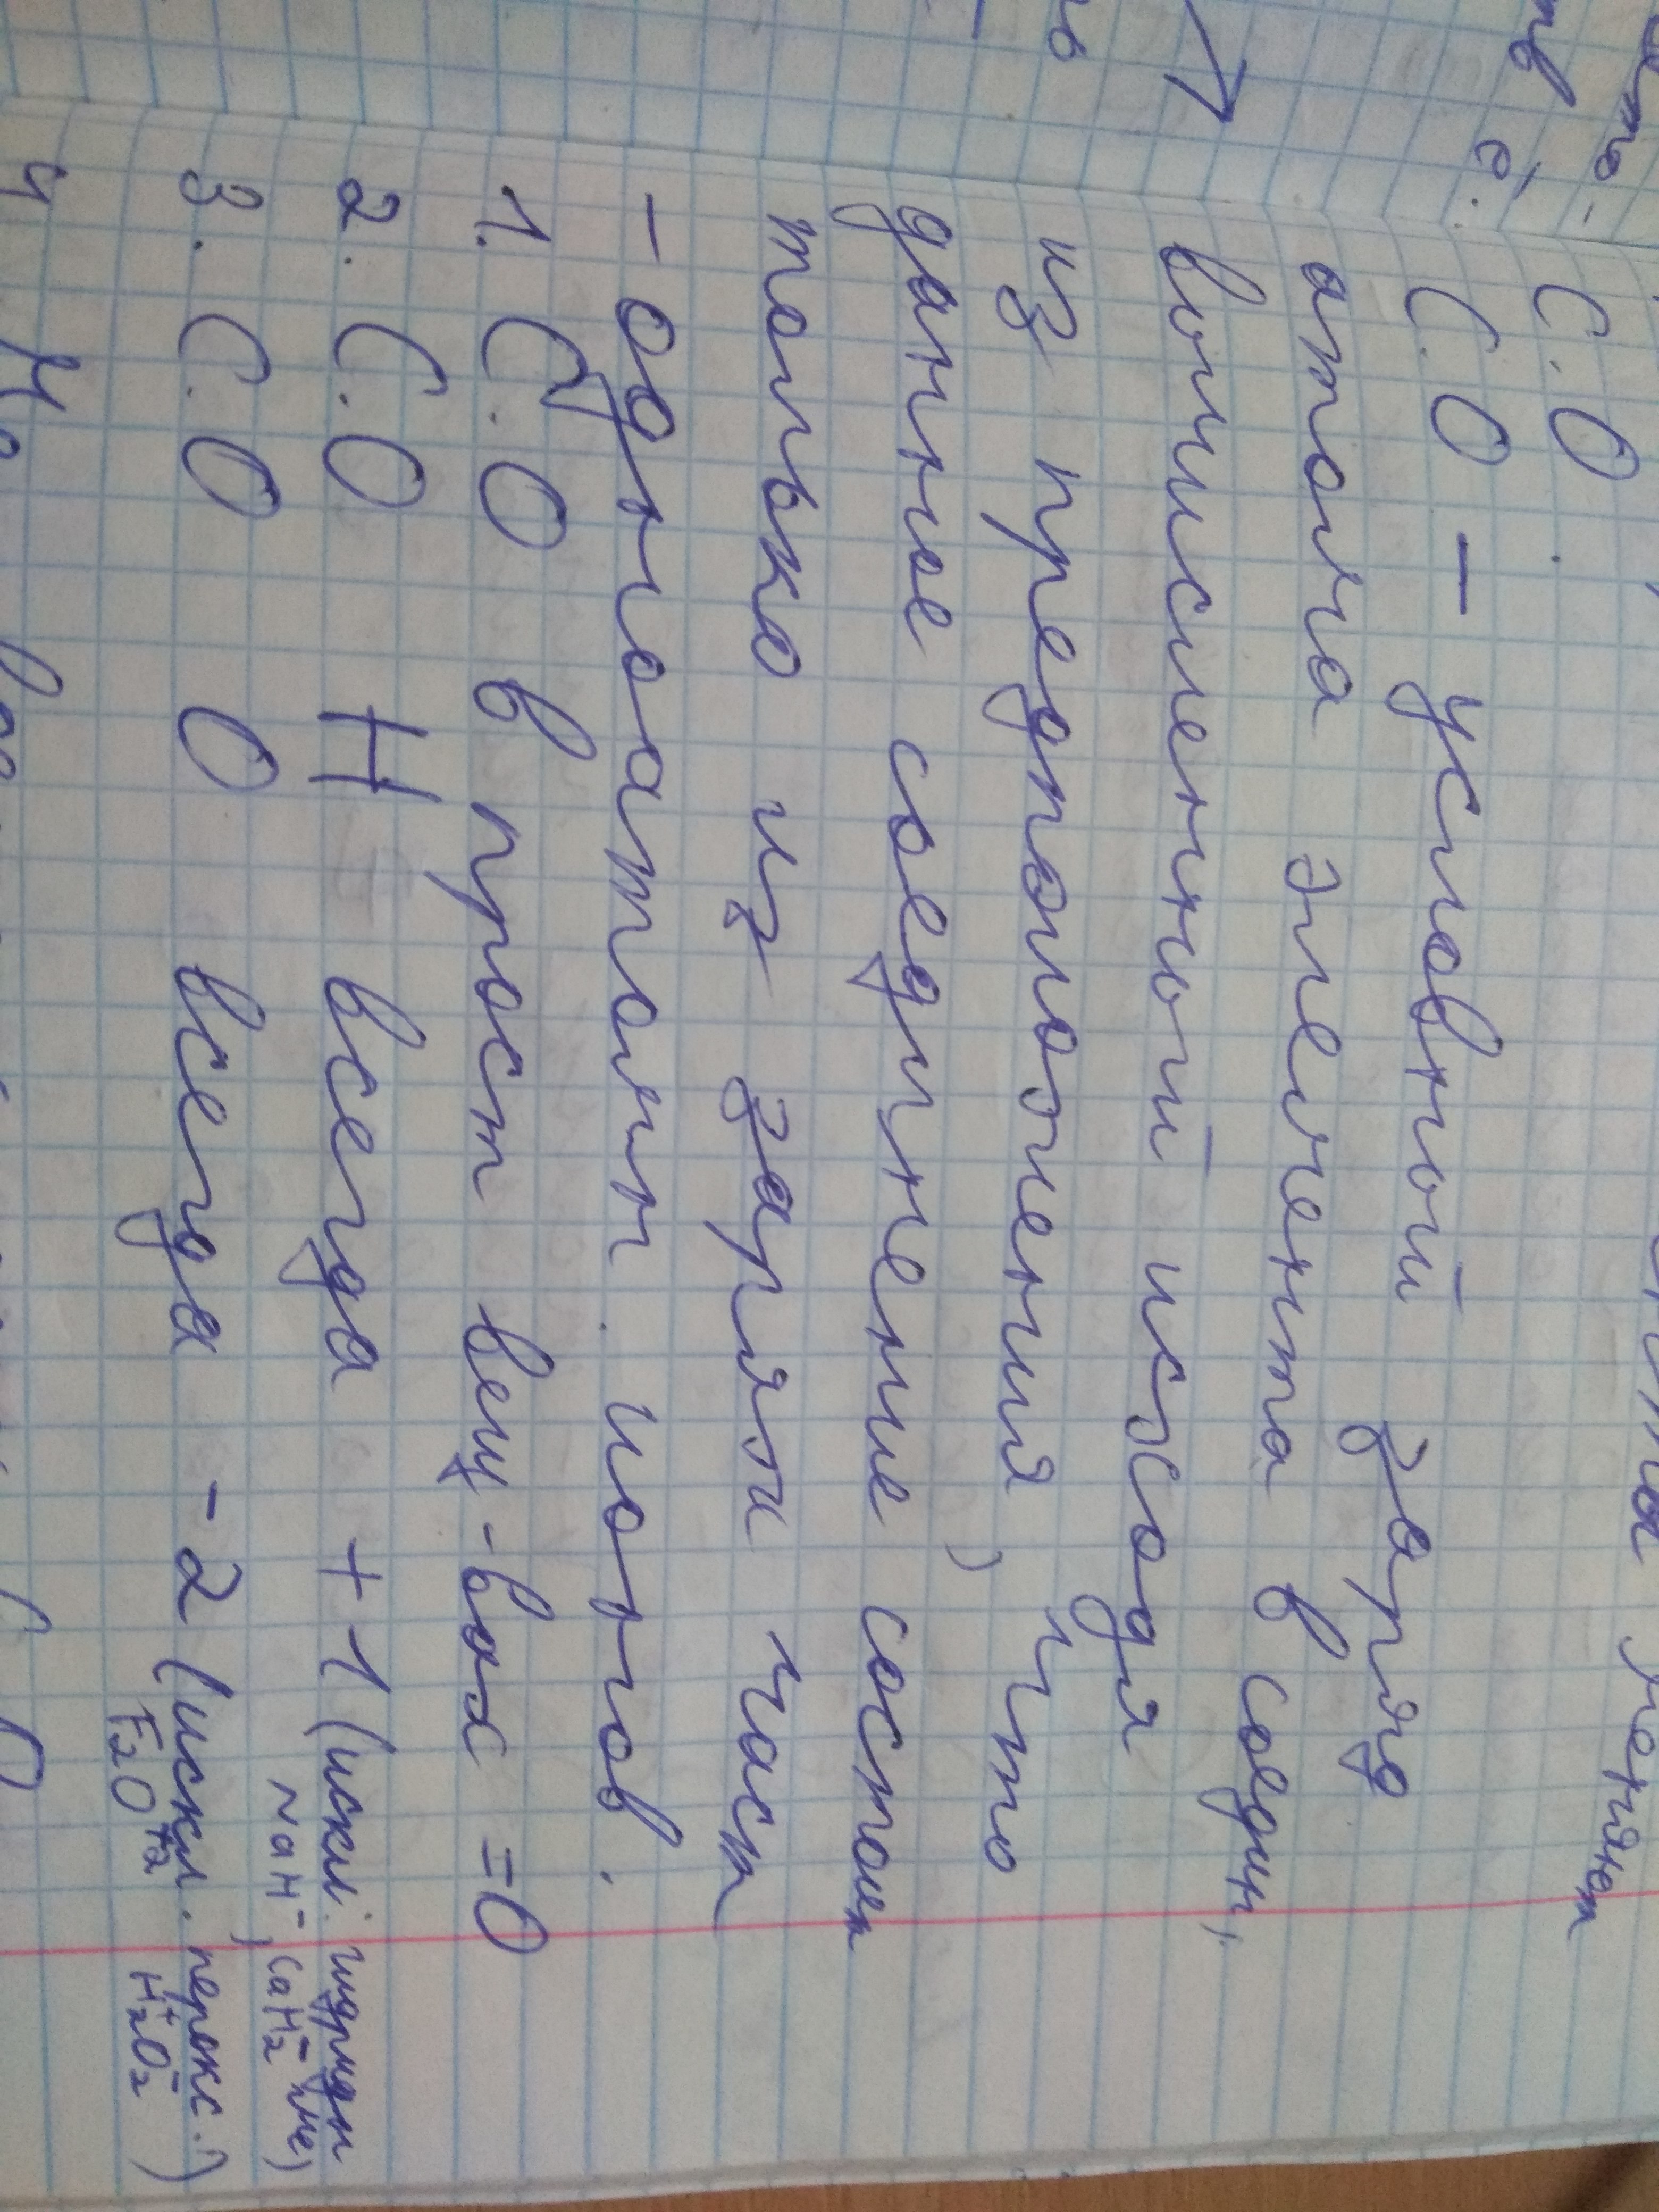 меняют
С.О.
С.О – условный заряд
атома элемента в соедин,
вычисленный исходя
из предположения, что
данное соединение состоит
только из заряж част
– одноатомн. ионов.
1. С.О в прост вещ-вах =0
2. С.О Н всегда +1 (искл. гидриды
NaH⁻, CaH₂⁻ Ме)
3. С.О О всегда -2 (искл. перокс.)
F₂O⁺² H₂⁺O₂⁻)
4